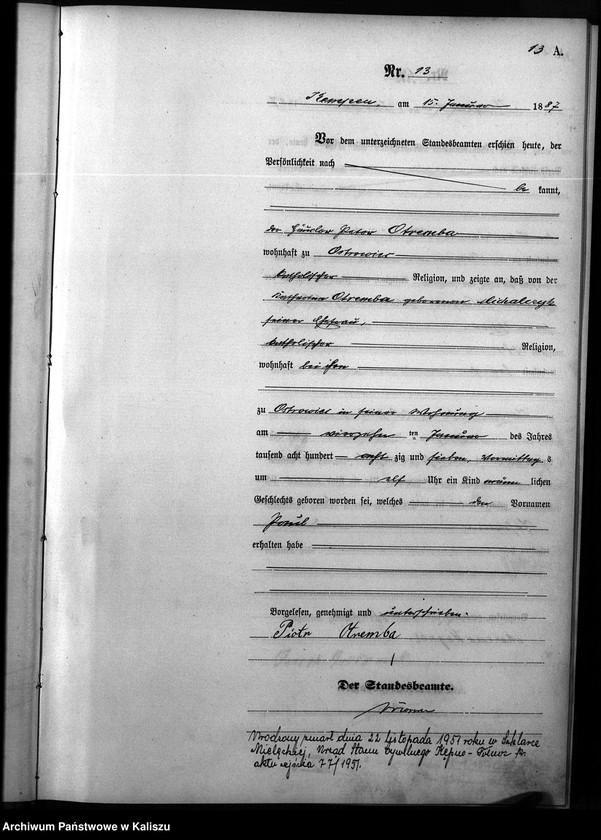 13 A.
Nr. 13
am 15. Januar 1887
Vor dem unterzeichneten Standesbeamten erschien heute, der
Persönlichkeit nach
be kannt,
der Häusler Peter Otremba
wohnhaft zu Ostrowiec
katholischer Religion, und zeigte an, daß von der
Katharina Otremba geborenen Michalczyk
seiner Ehefrau,
katholischer Religion,
wohnhaft bei ihm
zu Ostrowiec in seiner Wohnung
am vierzehn ten Januar des Jahres
tausend acht hundert acht zig und sieben, Vormittag s
um elf Uhr ein Kind männ lichen
Geschlechts geboren worden sei, welches den Vornamen
Paul
erhalten habe
Vorgelesen, genehmigt und unterschrieben.
Piotr Otremba
Der Standesbeamte.
Urodzony zmarł dnia 22 listopada 1951 roku w
Urząd Stanu Cywilnego Kępno
aktu zejścia 77/1951.
Archiwum Państwowe w Kaliszu